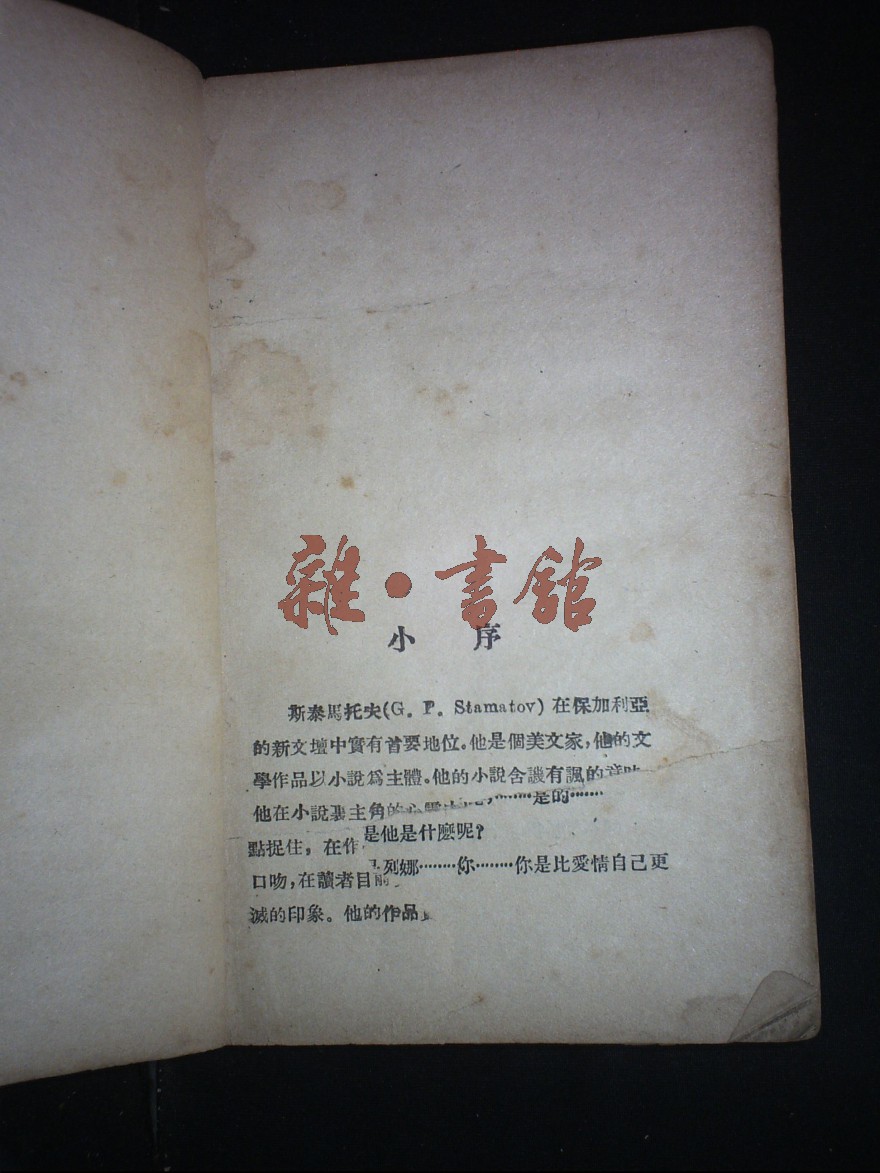 雜·書館
小序
斯泰馬托夫(G. P. Stamatov) 在保加利亞
的新文壇中實有首要地位。他是個美文家，他的文
學作品以小說爲主體。他的小說含譏有諷的
他在小說裏主角的 ………是的………
是他是什麽呢？
點捉住，在作
列娜………你………你是比愛情自己更
口吻，在讀者目前
滅的印象。他的作品